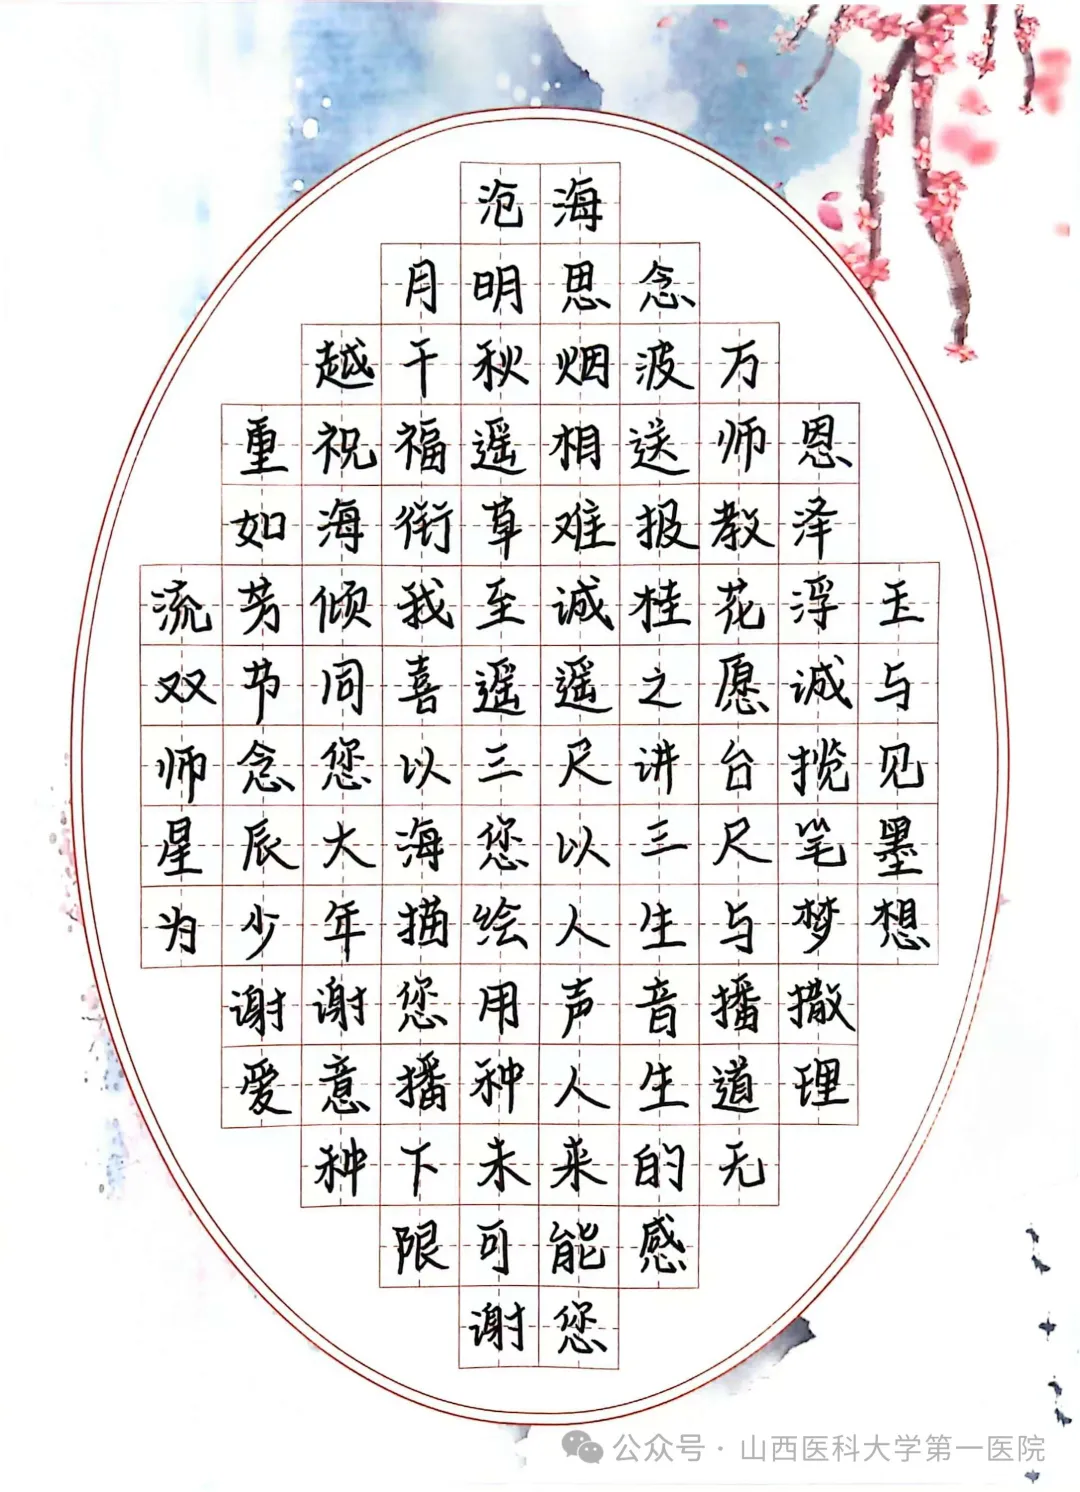 沧海
月明思念
越千秋烟波万
重祝福遥相送师恩
如海衔草难报教泽
流芳倾我至诚桂花浮玉
双节同喜遥遥之愿诚与
师念您以三尺讲台揽见
星辰大海您以三尺笔墨
为少年描绘人生与梦想
谢谢您用声音播撒
爱意播种人生道理
种下未来的无
限可能感
谢您
公众号·山西医科大学第一医院